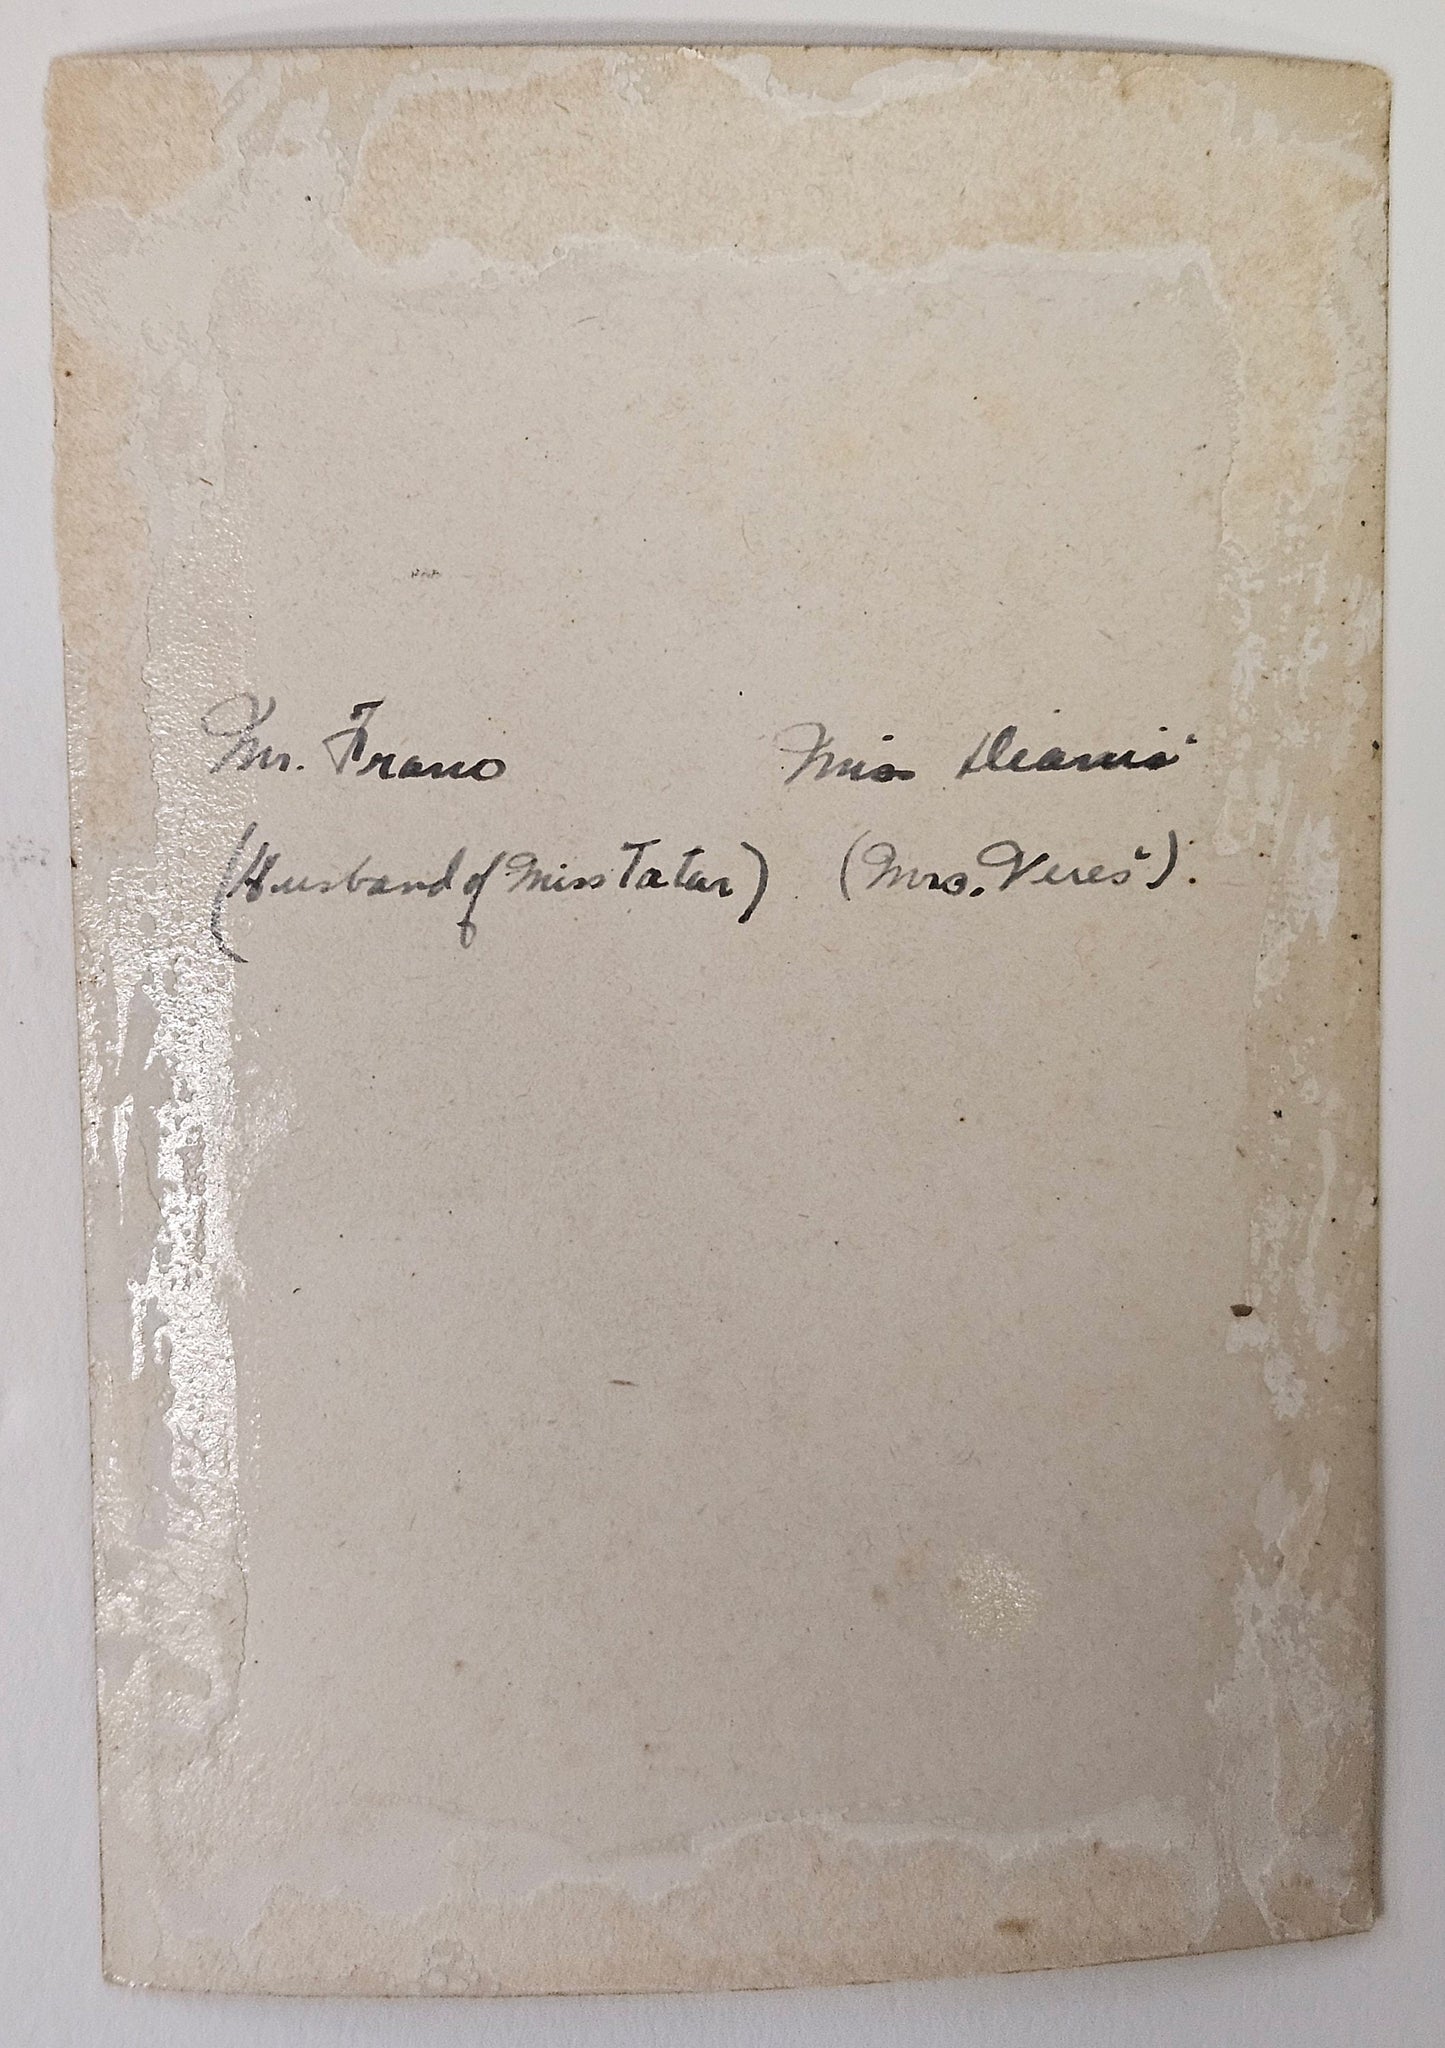 Mr. Frano Miss
(Husband of Miss Tatar) (Mrs. Veres).